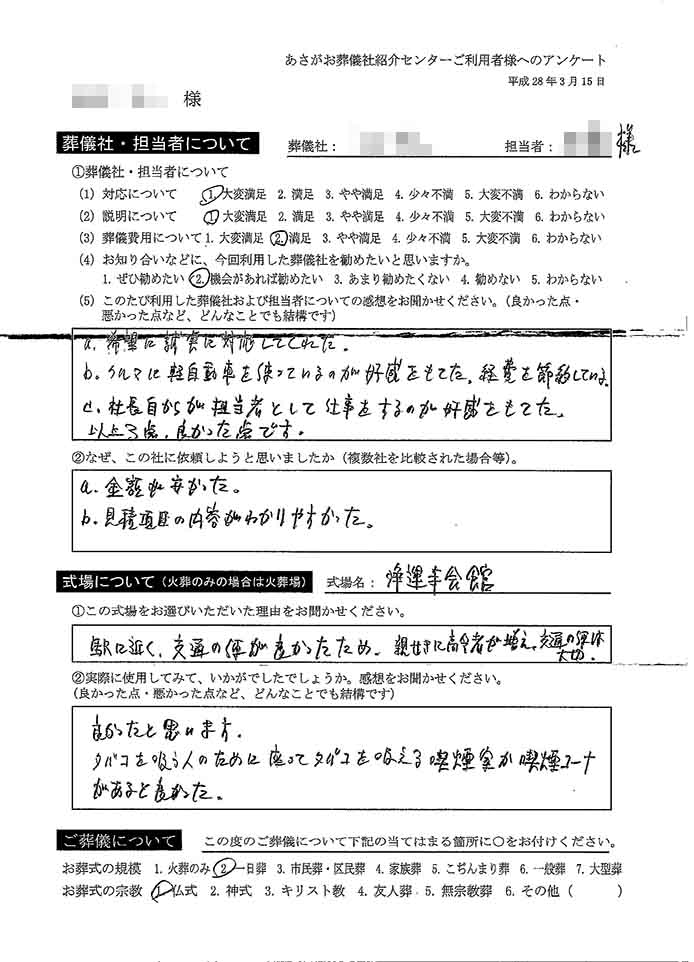 あさがお葬儀社紹介センターご利用者様へのアンケート
平成28年3月15日
様
葬儀社・担当者について
葬儀社: 担当者: 様
①葬儀社・担当者について
(1) 対応について 1. 大変満足 2. 満足 3. やや満足 4. 少々不満 5. 大変不満 6. わからない
(2) 説明について 1. 大変満足 2. 満足 3. やや満足 4. 少々不満 5. 大変不満 6. わからない
(3) 葬儀費用について 1. 大変満足 2. 満足 3. やや満足 4. 少々不満 5. 大変不満 6. わからない
(4) お知り合いなどに、今回利用した葬儀社を勧めたいと思いますか。
1. ぜひ勧めたい 2. 機会があれば勧めたい 3. あまり勧めたくない 4. 勧めない 5. わからない
(5) このたび利用した葬儀社および担当者についての感想をお聞かせください。(良かった点・
悪かった点など、どんなことでも結構です)
a. 希望に誠実に対応してくれた。
b. クルマに軽自動車を使っているのが好感をもてた。経費を節約している。
c. 社長自からが担当者として仕事をするのが好感をもてた。
以上3点、良かった点です。
②なぜ、この社に依頼しようと思いましたか(複数社を比較された場合等)。
a. 金額が安かった。
b. 見積項目の内容がわかりやすかった。
式場について(火葬のみの場合は火葬場)
式場名: 会館
①この式場をお選びいただいた理由をお聞かせください。
駅に近く、交通の便が良かったため。親せきに高令者が増え、交通の便は
大切。
②実際に使用してみて、いかがでしたでしょうか。感想をお聞かせください。
(良かった点・悪かった点など、どんなことでも結構です)
良かったと思います。
タバコを吸う人のために座ってタバコを吸える喫煙室か喫煙コーナ
があると良かった。
ご葬儀について
この度のご葬儀について下記の当てはまる箇所に○をお付けください。
お葬式の規模 1. 火葬のみ 2. 一日葬 3. 市民葬・区民葬 4. 家族葬 5. こぢんまり葬 6. 一般葬 7. 大型葬
お葬式の宗教 1. 仏式 2. 神式 3. キリスト教 4. 友人葬 5. 無宗教葬 6. その他 ( )